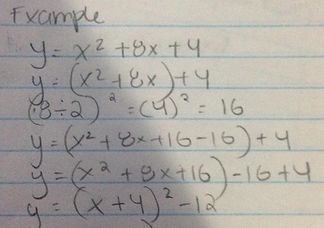 Example
y = x² + 8x + 4
y = (x² + 8x) + 4
(8 ÷ 2)² = (4)² = 16
y = (x² + 8x + 16 - 16) + 4
y = (x² + 8x + 16) - 16 + 4
y = (x + 4)² - 12